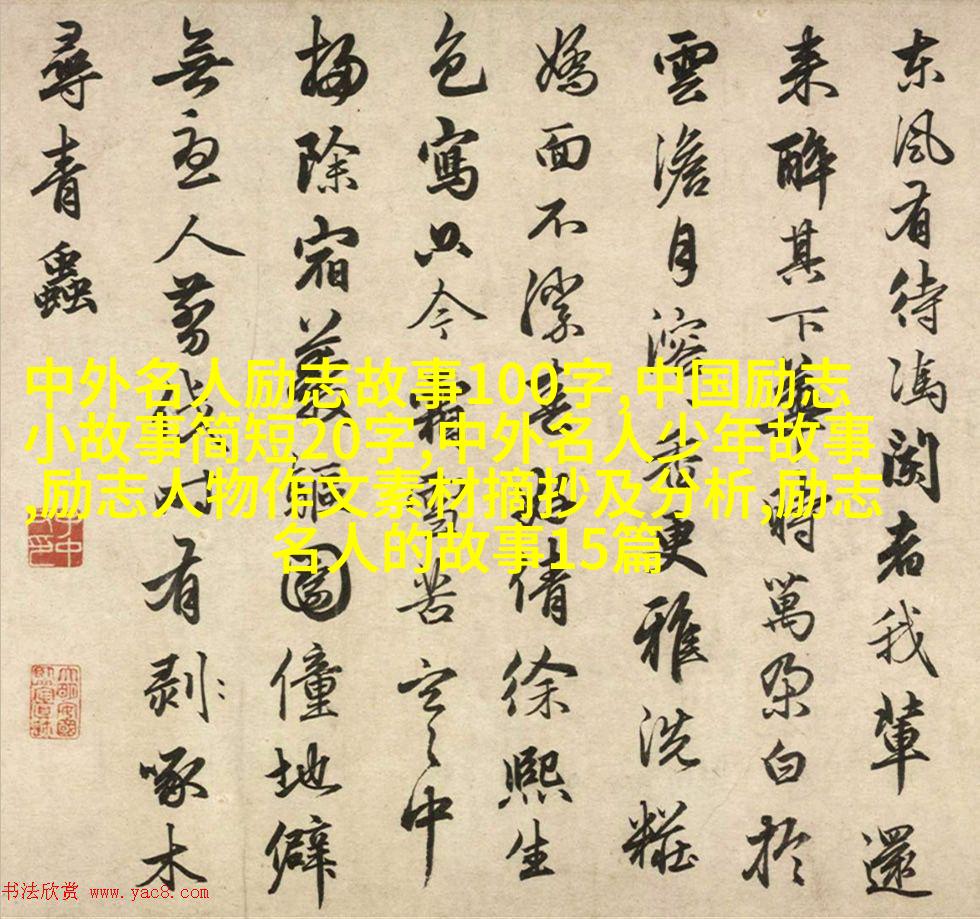 东風有待馮闌者我輩還
来醉其下時萬朶白於
雲澹月溶更雅洗糚
嬌面不倩徐熙生
色寫只今霜雪苦中
掃除宿園僮地僻
無人有剥啄木
尋青蟲
中外名人励志故事100字,中国励志
小故事简短20字,中外名人少年故事
,励志人物作文素材摘抄及分析,励志
名人的故事15篇
书法欣赏 www.yac8.com